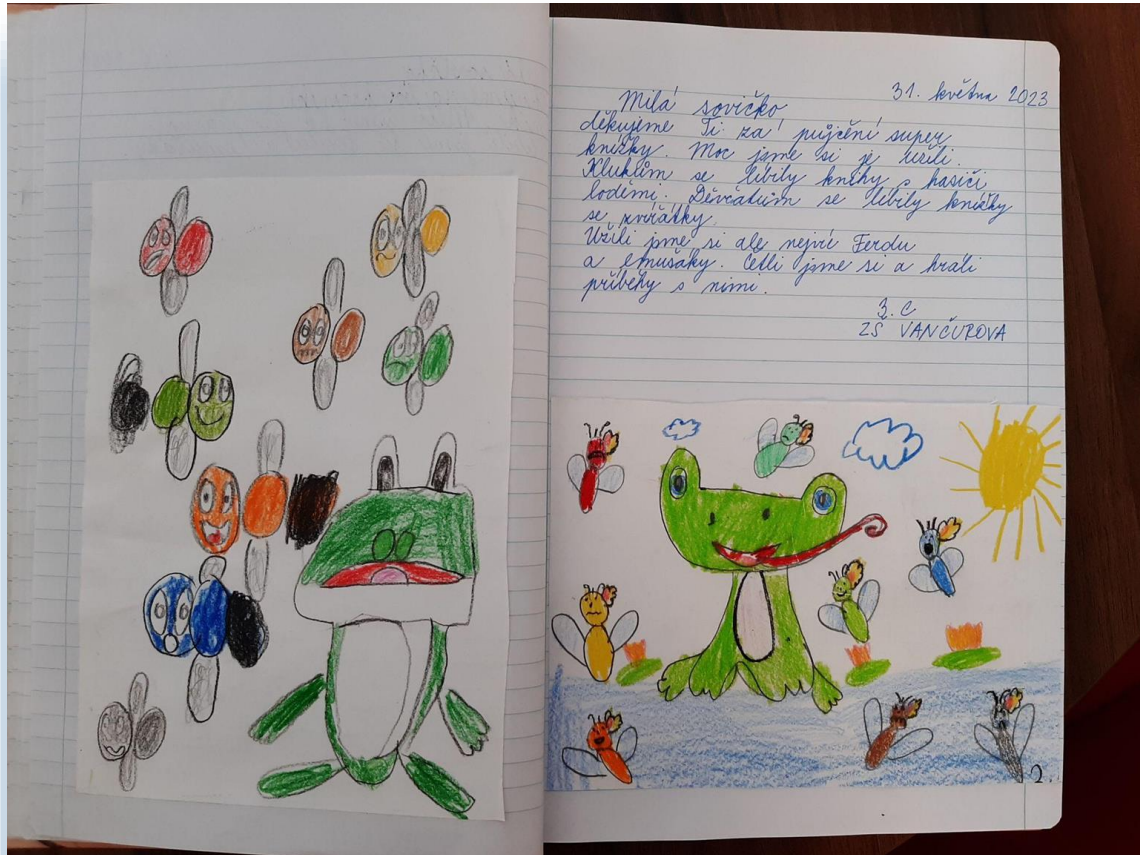 31. května 2023
Milá sovičko
děkujeme Ti za půjčení super
knížky. Moc jsme si je užili.
Klukům se líbily knihy s hasiči
loděmi. Děvčatům se líbily knížky
se zvířátky.
Užili jsme si ale nejvíc Ferdu
a emušáky. Četli jsme si a hráli
příběhy s nimi.
3. C
ZŠ VANČUROVA
2.